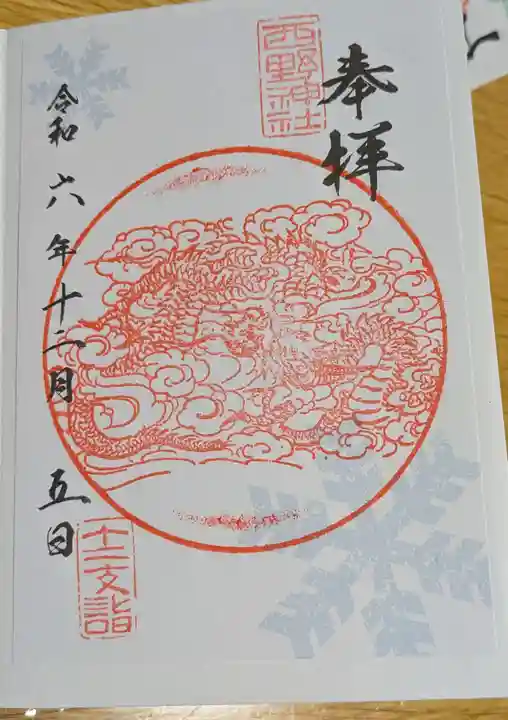 奉拝
西野神社
令和六年十二月五日
十二支詣